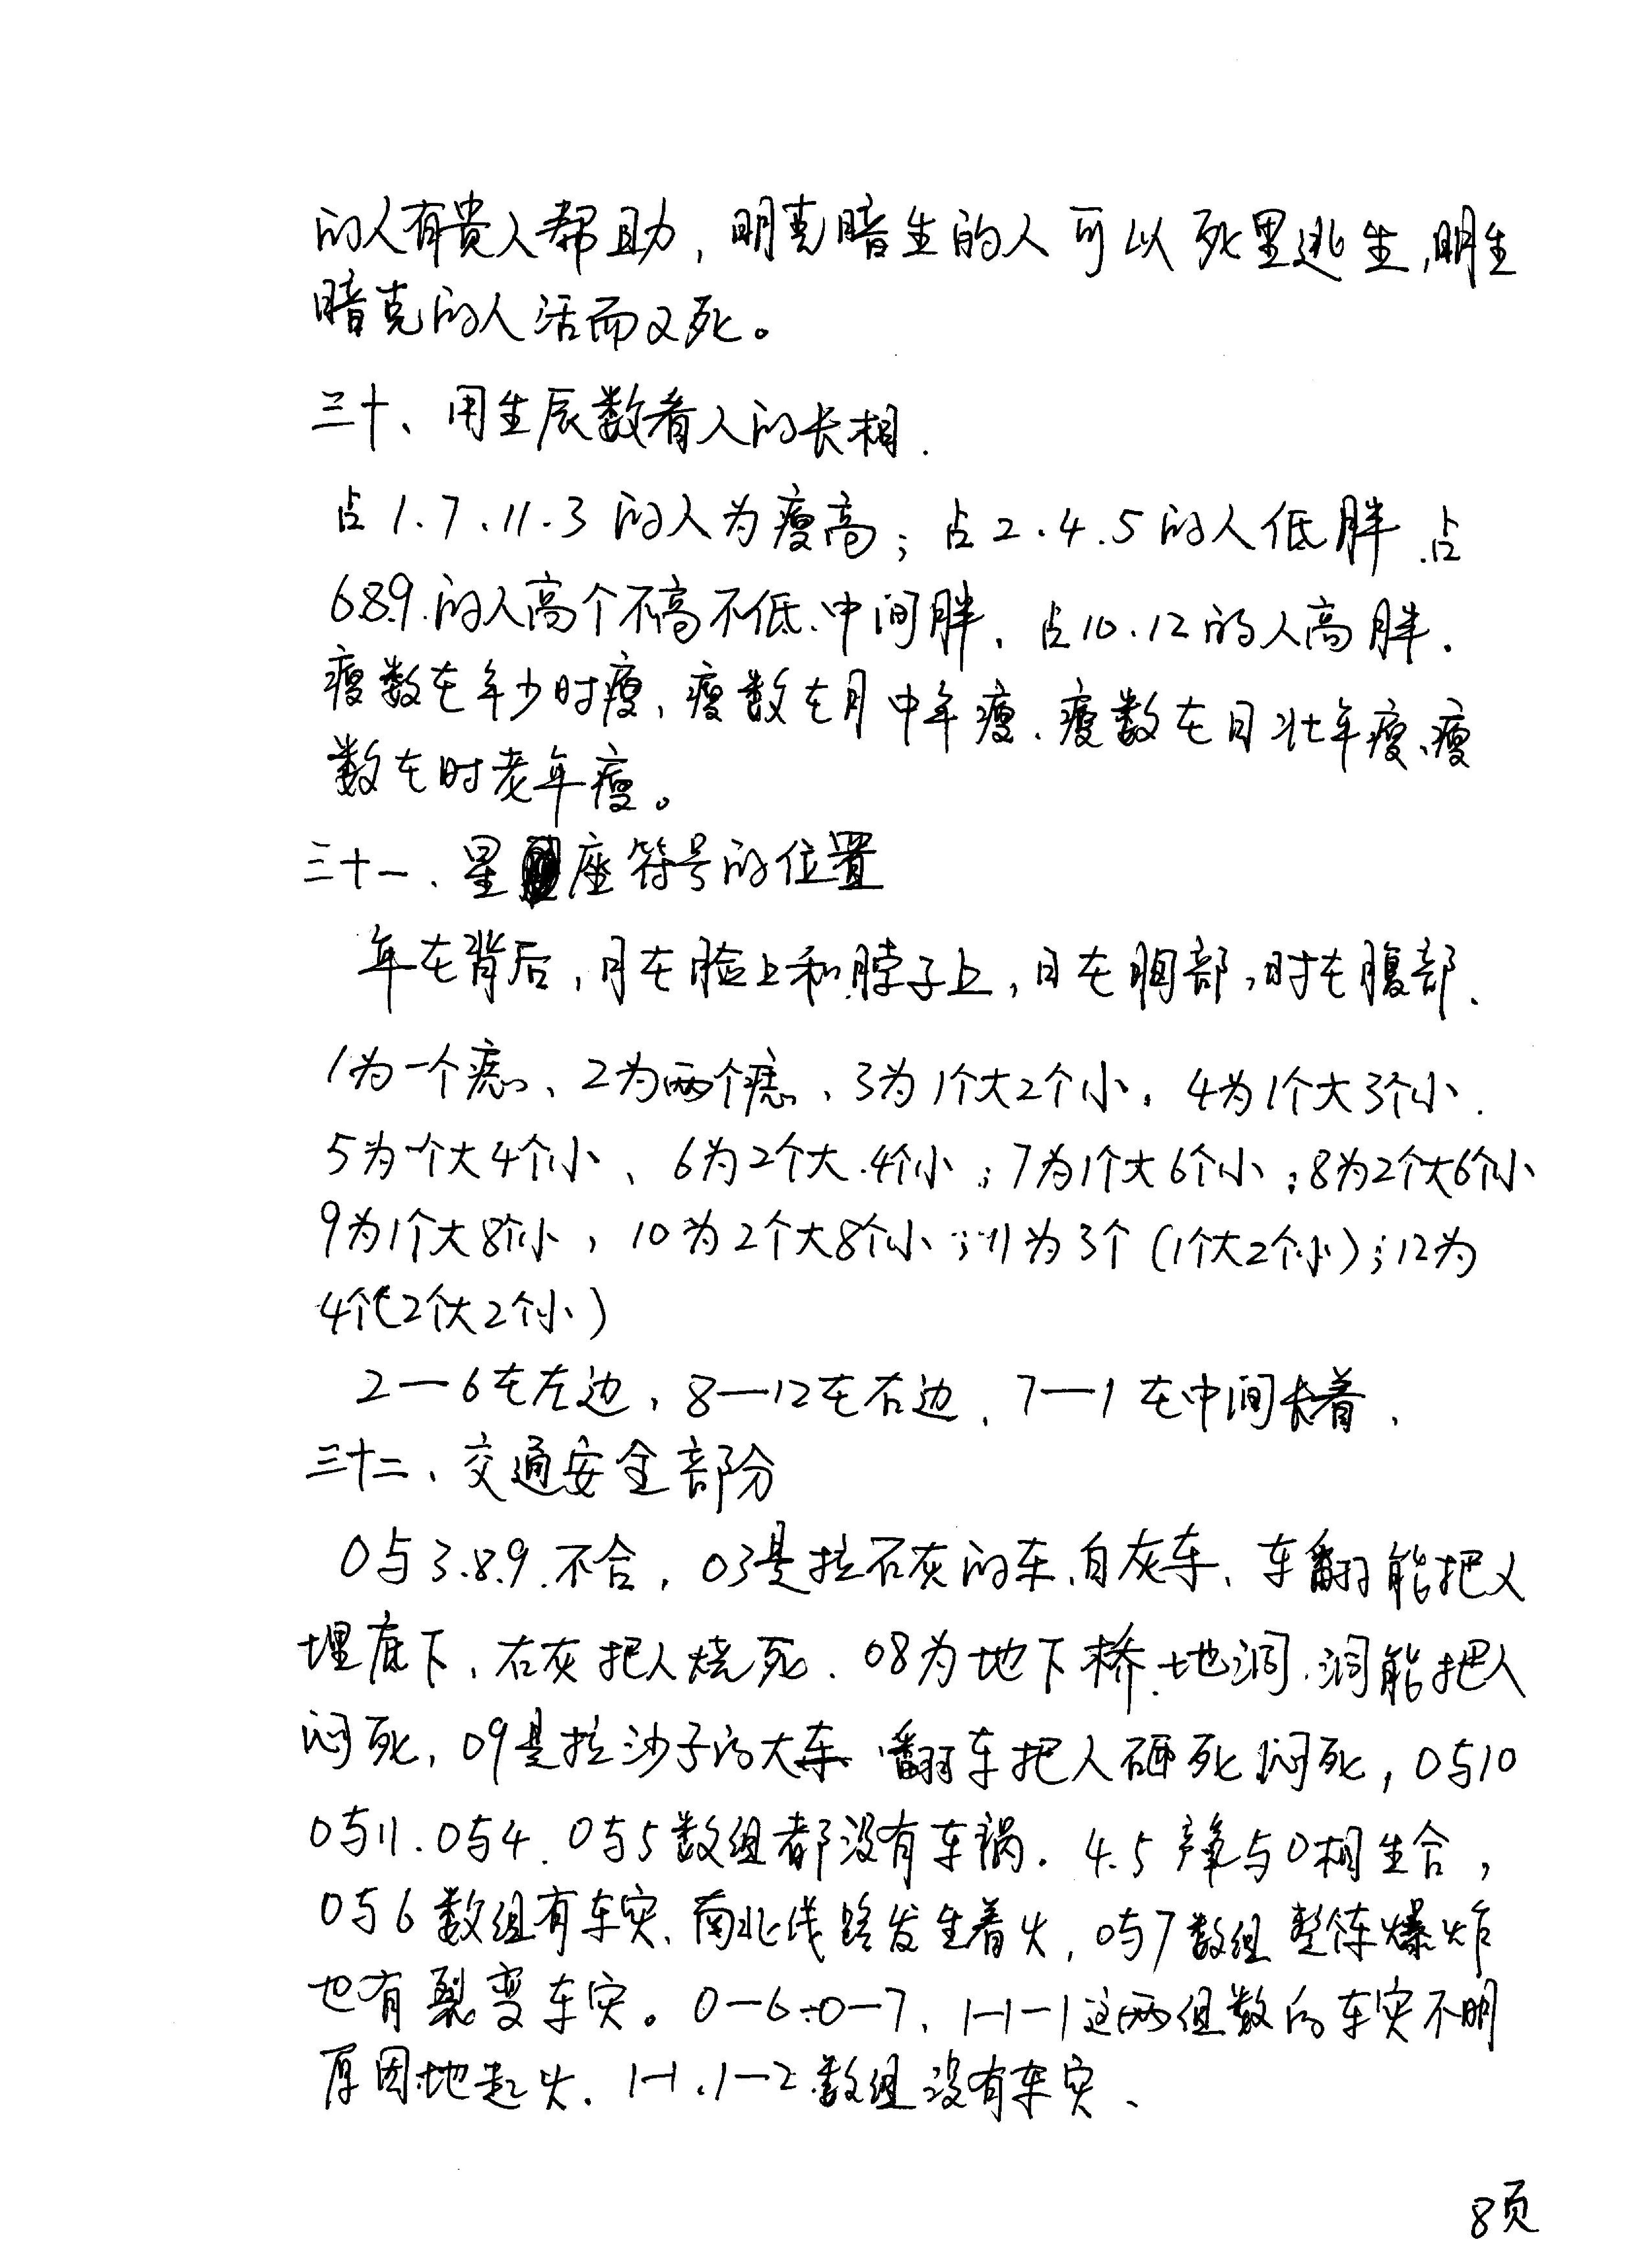 的人有贵人帮助，明克暗生的人可以死里逃生，明生
暗克的人活而又死。
三十、用生辰数看人的长相.
占1.7.11.3的人为瘦高；占2.4.5的人低胖.占
6.8.9.的人高个不高不低、中间胖、占10.12的人高胖.
瘦数在年少时瘦、瘦数在月中年瘦、瘦数在日壮年瘦、瘦
数在时老年瘦。
三十一、星座符号的位置
年在背后，月在脸上和脖子上，日在胸部，时在腹部、
1为一个痣、2为两个痣、3为1个大2个小，4为1个大3个小.
5为一个大4个小、6为2个大.4个小；7为1个大6个小；8为2个大6个小
9为1个大8个小，10为2个大8个小；11为3个(1个大2个小)；12为
4个(2个大2个小)
2—6在左边，8—12在右边、7—1在中间长着、
三十二、交通安全部分
0与3.8.9.不合，03是拉石灰的车、白灰车、车翻能把人
埋底下、石灰把人烧死.08为地下桥.地洞.洞能把人
闷死，09是拉沙子的大车 翻车把人砸死闷死，0与10
0与11.0与4.0与5数组都没有车祸.4.5 与0相生合，
0与6数组有车灾、南北线路发生着火，0与7数组整体爆炸
也有裂变车灾。0—6.0—7、1—1—1这两组数的车灾不明
原因地起火.1—1、1—2数组没有车灾、
8页